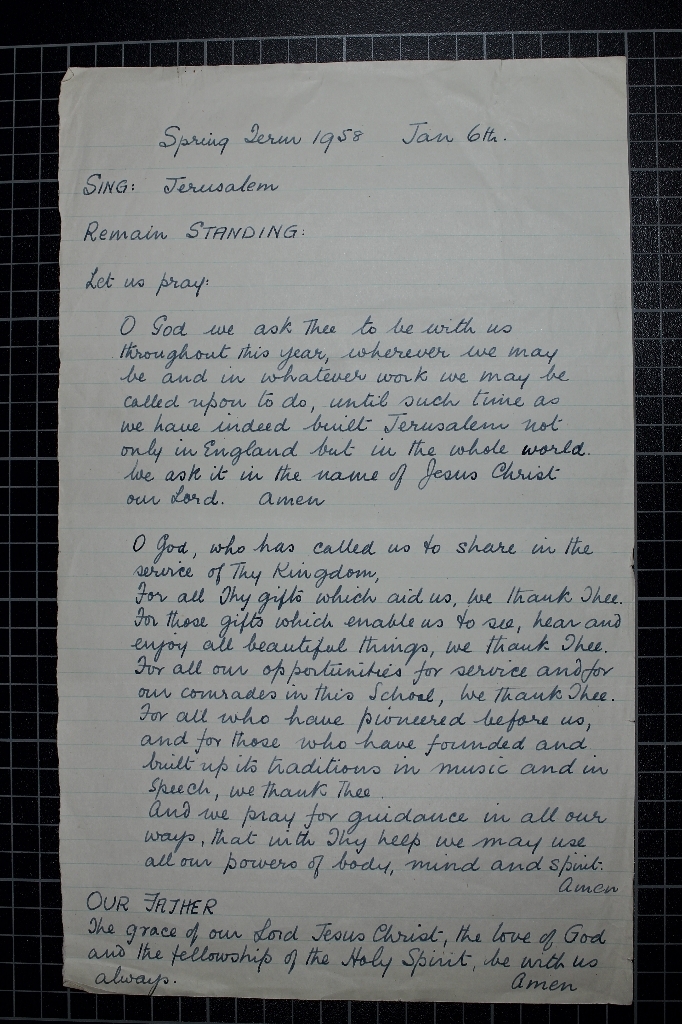 Spring Term 1958 Jan 6th.
SING: Jerusalem
Remain STANDING:
Let us pray:
O God we ask Thee to be with us
throughout this year, wherever we may
be and in whatever work we may be
called upon to do, until such time as
we have indeed built Jerusalem not
only in England but in the whole world.
We ask it in the name of Jesus Christ
our Lord. Amen
O God, who has called us to share in the
service of Thy Kingdom,
For all Thy gifts which aid us, we thank Thee.
For those gifts which enable us to see, hear and
enjoy all beautiful things, we thank Thee.
For all our opportunities for service and for
our comrades in this School, We thank Thee.
For all who have pioneered before us,
and for those who have founded and
built up its traditions in music and in
Speech, we thank Thee.
And we pray for guidance in all our
ways, that with Thy help we may use
all our powers of body, mind and spirit.
Amen
OUR FATHER
The grace of our Lord Jesus Christ, the love of God
and the fellowship of the Holy Spirit, be with us
always. Amen